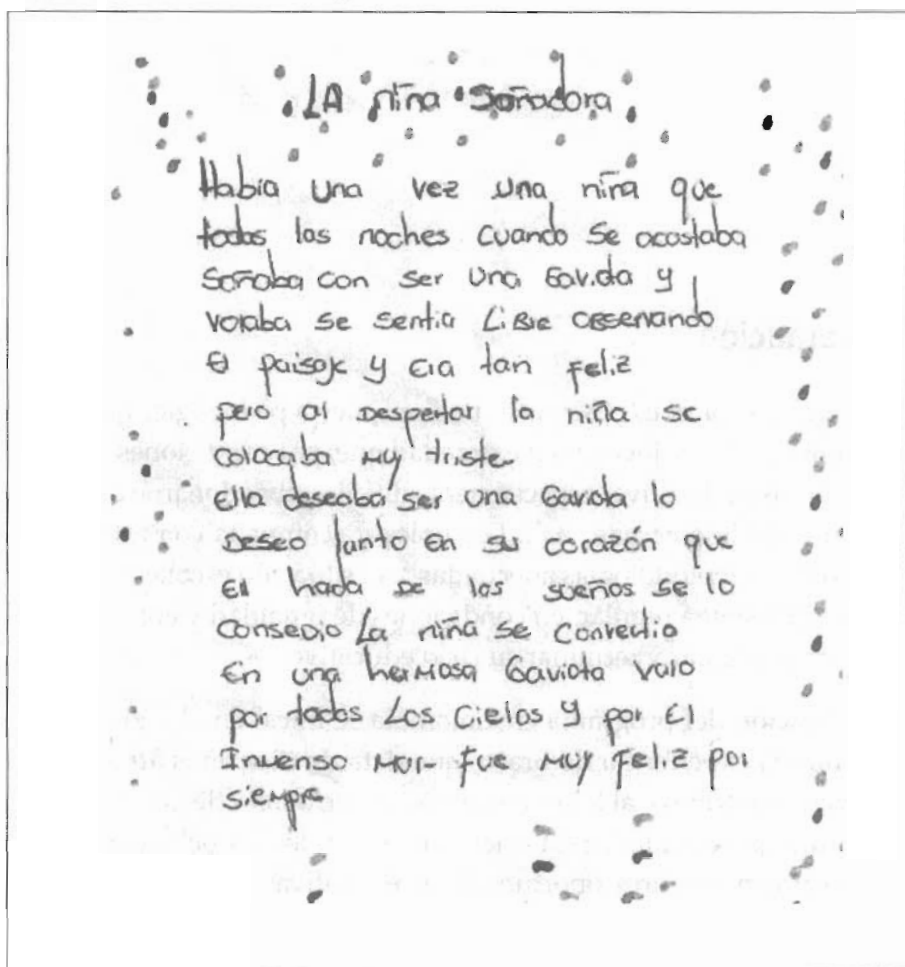 LA niña Soñadora
Había una vez una niña que
todas las noches cuando se acostaba
Soñaba con ser una Gaviota y
volaba se sentia LiBRe OBSERVANDO
El paisaje y Era tan feliz
pero al Despertar la niña se
colocaba MUY triste
Ella Deseaba ser una Gaviota lo
DESEO tanto En su corazón que
El hada DE los sueños se lo
Consedio La niña se convertio
En una herMosa Gaviota Volo
por todos Los Cielos y por El
Inmenso Mar. Fue MUY Feliz por
siempre